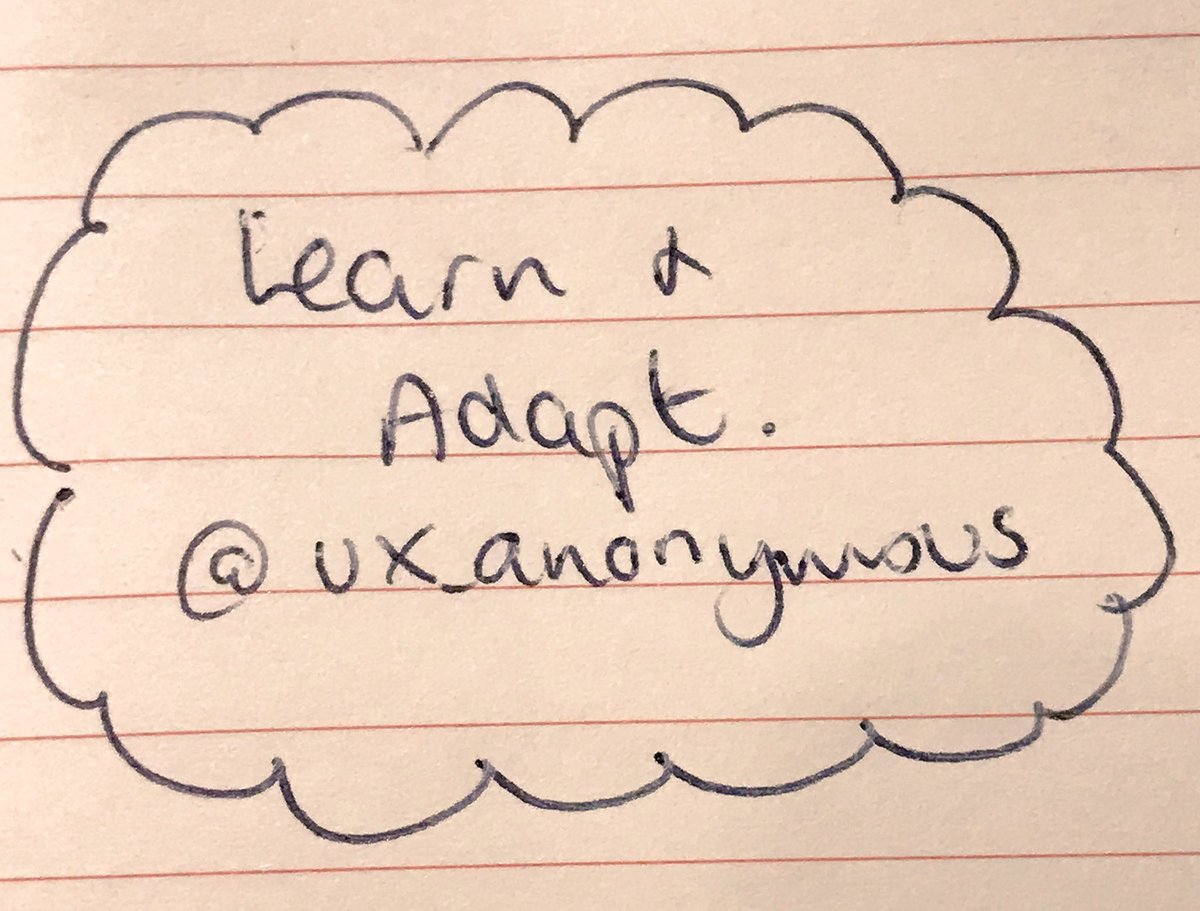 Learn &
Adapt.
@ux_anonymous